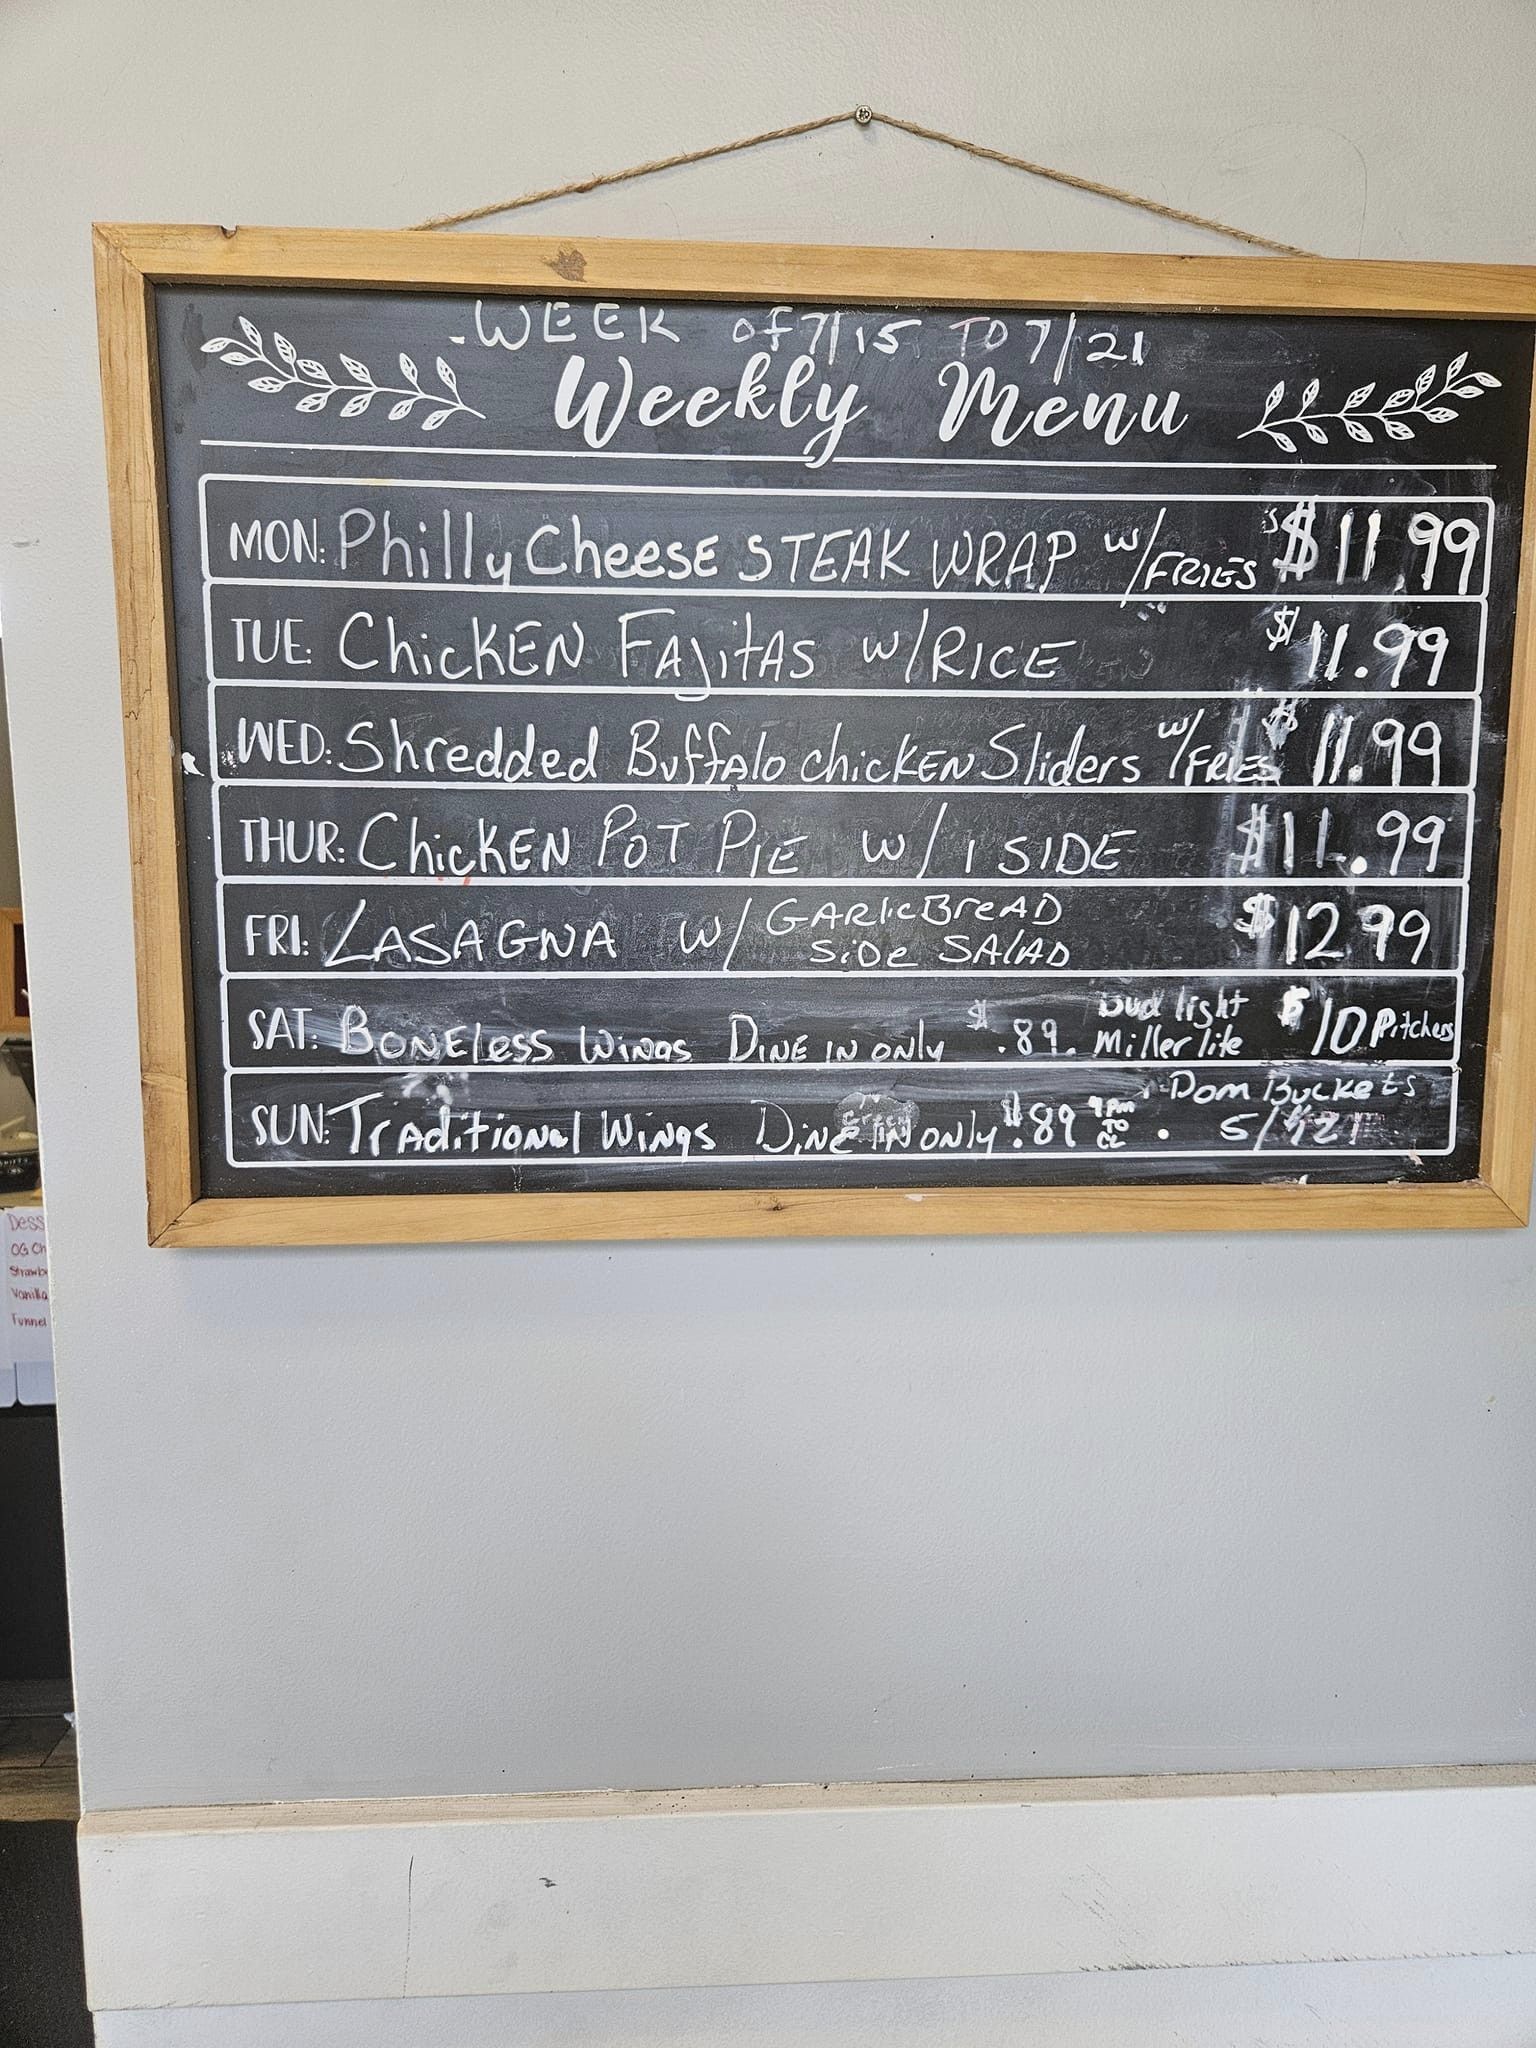 WEEK OF 7/15 TO 7/21
Weekly Menu
MON: Philly Cheese STEAK WRAP w/FRIES $11 99
TUE: ChicKEN FAjitAS w/RICE $11.99
WED: Shredded BuffAlo chicKEN Sliders w/FRIES $11.99
THUR: ChicKEN POT PIE w/ 1 SIDE $11.99
FRI: LASAGNA w/ GARlic BreAD
SiDe SAlAD $12 99
SAT: BONEless WiNgs DINE IN ONly $ .89. Bud light
Miller lite $10 Pitchers
SUN: TrAditioNal WiNgs DiNE IN ONly $.89 4pm
TO
CL . Dom BucKets
5/$21
Dess
OG Ch
Strawb
Vanilla
Tunnel